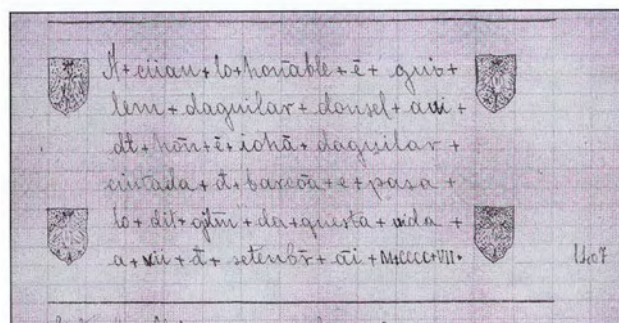 A+ciiau+lo+honable+ē+guiv+
lem+daguilar+donsel+avi+
dt+hōn+ē+iohā+daguilar+
ciutada+đ+barcōa+e+pasa+
lo+dit+gltm+da+questa+vida+
a+xii+đ+setenbr̄+āi+M+CCCC+VII+
1407